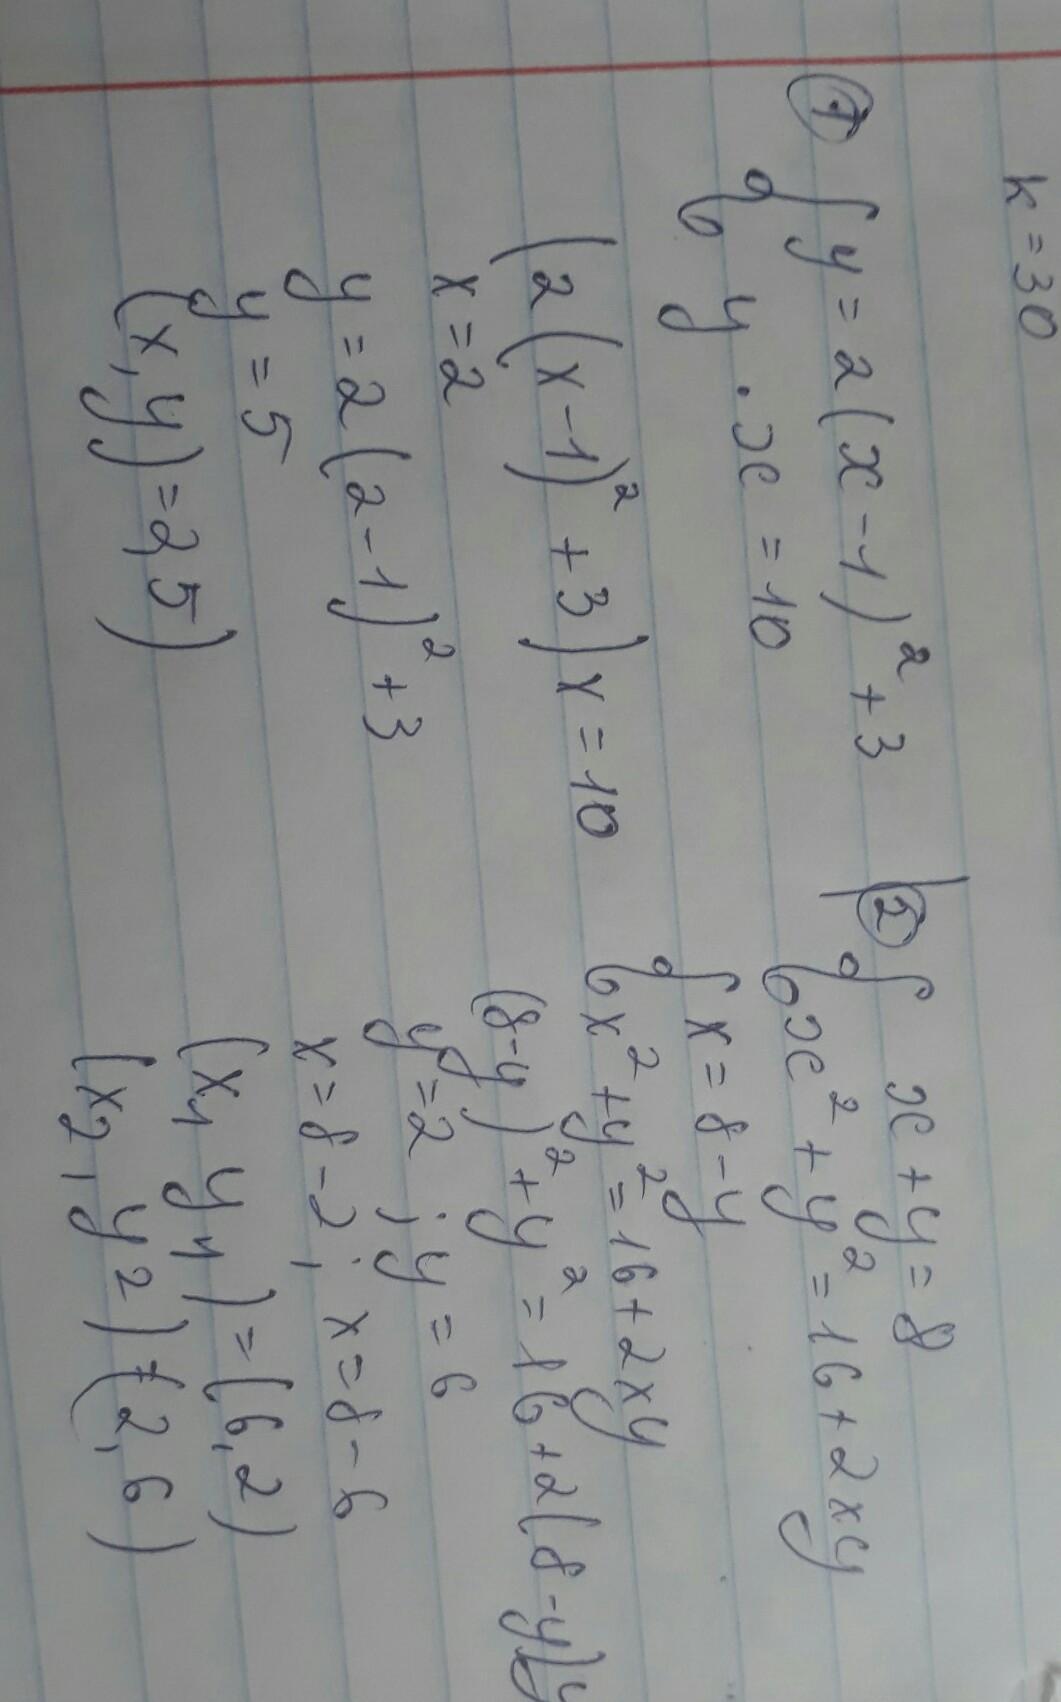 k = 30
① { y = 2(x-1)² + 3
y · x = 10
(2(x-1)² + 3) x = 10
x = 2
y = 2(2-1)² + 3
y = 5
(x, y) = 2, 5)
② { x + y = 8
x² + y² = 16 + 2xy
{ x = 8 - y
x² + y² = 16 + 2xy
(8-y)² + y² = 16 + 2(8-y)y
y = 2 ; y = 6
x = 8 - 2 ; x = 8 - 6
(x₁ y₁) = (6, 2)
(x₂, y₂) = (2, 6)